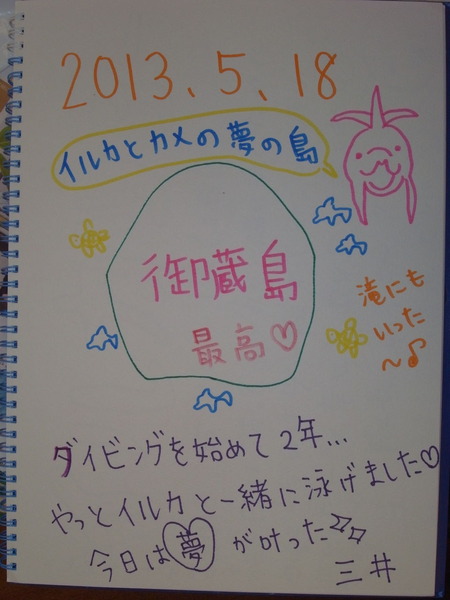 2013.5.18
イルカとカメの夢の島
御蔵島
最高♡
滝にも
いった
〜♪
ダイビングを始めて2年...
やっとイルカと一緒に泳げました♡
今日は夢が叶った☆☆
三井